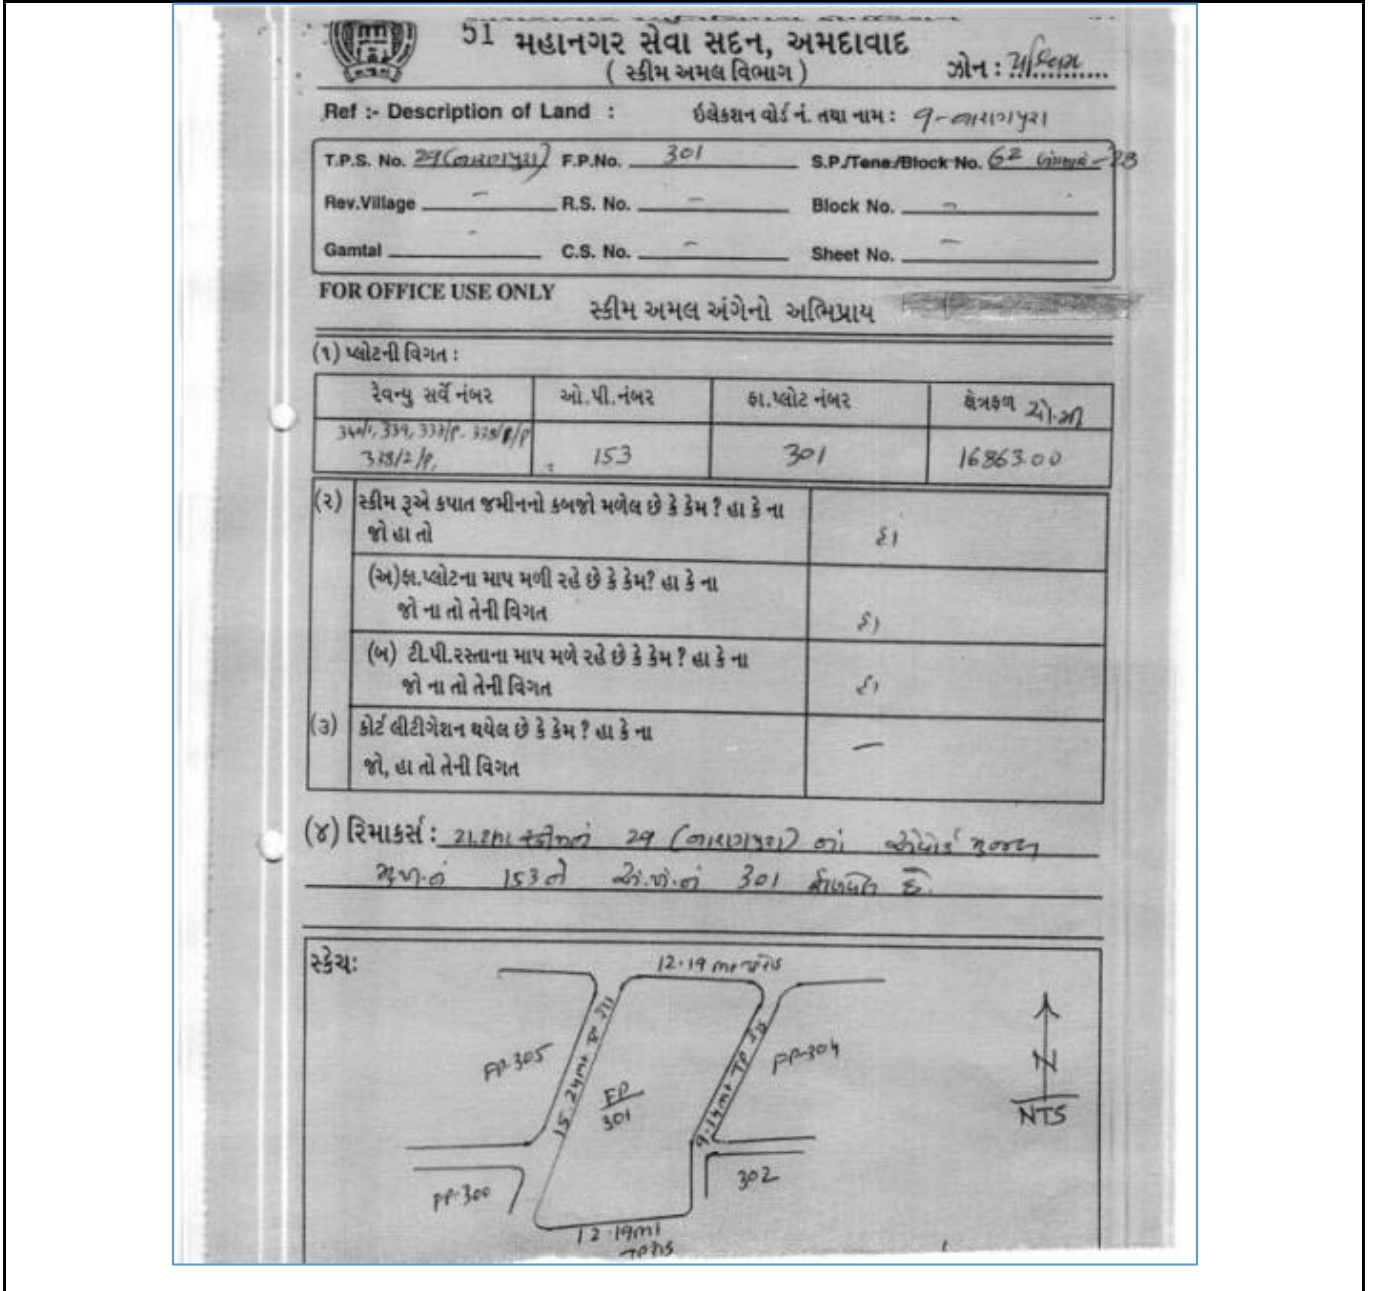 51 મહાનગર સેવા સદન, અમદાવાદ
( સ્કીમ અમલ વિભાગ )
ઝોન : પશ્ચિમ
Ref :- Description of Land :
ઇલેકશન વોર્ડ નં. તથા નામ : ૧-નારણપુરા
T.P.S. No. 29 (નારણપુરા) F.P.No. 301 S.P./Tena./Block No. 62
Rev.Village - R.S. No. - Block No. -
Gamtal - C.S. No. - Sheet No. -
FOR OFFICE USE ONLY
સ્કીમ અમલ અંગેનો અભિપ્રાય
(૧) પ્લોટની વિગત :
રેવન્યુ સર્વે નંબર ઓ.પી.નંબર ફા.પ્લોટ નંબર ક્ષેત્રફળ ચો.મી
339,
338/2/P, 153 301 16863.00
(૨) સ્કીમ રૂએ કપાત જમીનનો કબજો મળેલ છે કે કેમ ? હા કે ના
જો હા તો હા
(અ) ફા.પ્લોટના માપ મળી રહે છે કે કેમ? હા કે ના
જો ના તો તેની વિગત હા
(બ) ટી.પી.રસ્તાના માપ મળે રહે છે કે કેમ ? હા કે ના
જો ના તો તેની વિગત હા
(૩) કોર્ટ લીટીગેશન થયેલ છે કે કેમ ? હા કે ના —
જો, હા તો તેની વિગત
(૪) રિમાકર્સ : 29 (નારણપુરા) નાં મુજબ
મુ.ખ.નં 153 ને અં.ખં.નં 301 ફાળવેલ છે.
સ્કેચઃ
12.19 mt
FP-305
15.24 mt TP રોડ
FP
301
9.14 mt TP રોડ
FP-304
N
NTS
FP-300
302
12.19 mt
TP રોડ